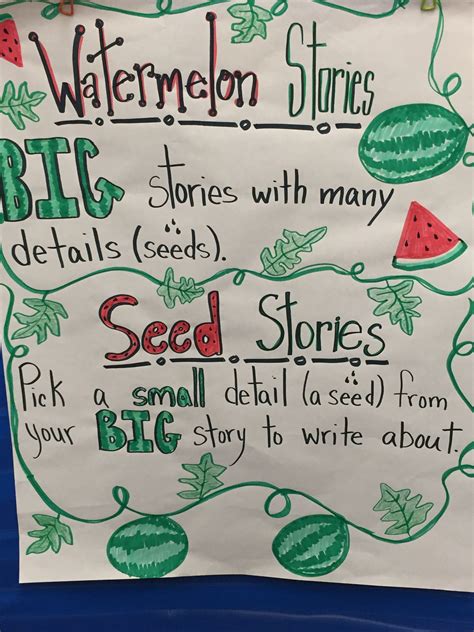 Watermelon Stories
BIG stories with many
details (seeds).
Seed Stories
Pick a small detail (a seed) from
your BIG story to write about.